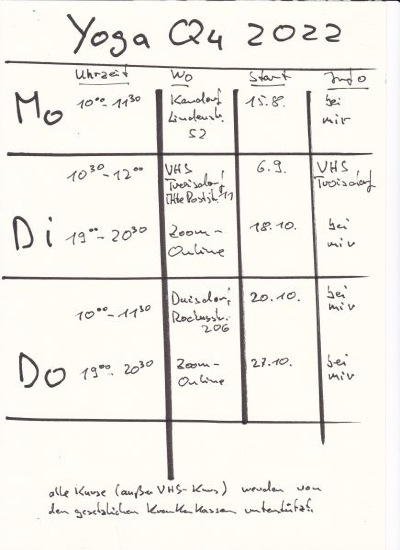 Yoga Q4 2022
Uhrzeit Wo Start Info
Mo 10⁰⁰-11³⁰ Lindenstr. 52 15.8. bei mir
10³⁰-12⁰⁰ VHS Troisdorf 6.9. VHS Troisdorf
Di 19⁰⁰-20³⁰ Zoom-Online 18.10. bei mir
10⁰⁰-11³⁰ Duisdorf, Rochusstr. 206 20.10. bei mir
Do 19⁰⁰-20³⁰ Zoom-Online 27.10. bei mir
alle Kurse (außer VHS-Kurs) werden von
den gesetzlichen Krankenkassen unterstützt.